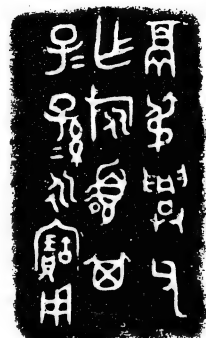 鬲弔興父
乍旅盨其
子=孫=永寶用